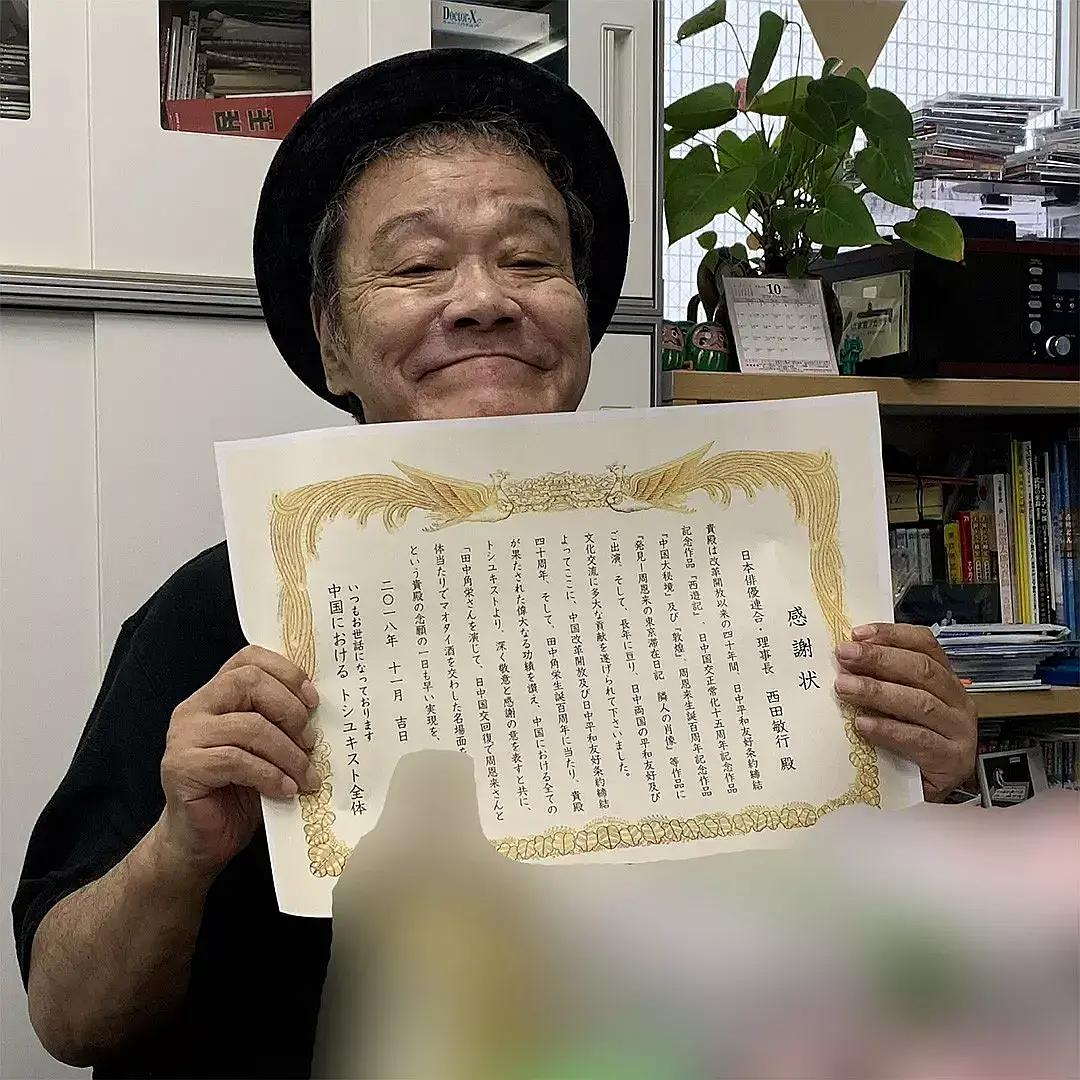 感謝状
日本俳優連合・理事長 西田敏行 殿
貴殿は改革開放以来の四十年間、日中平和友好条約締結
記念作品『西遊記』、日中国交正常化十五周年記念作品
『中国大秘境』及び『敦煌』、周恩来生誕百周年記念作品
『発見!周恩来の東京滞在日記 隣人の肖像』等作品に
ご出演、そして、長年に亘り、日中両国の平和友好及び
文化交流に多大な貢献を遂げられて下さいました。
よってここに、中国改革開放及び日中平和友好条約締結
四十周年、そして、田中角栄生誕百周年に当たり、貴殿
が果たされた偉大なる功績を讃え、中国における全ての
トシユキストより、深く敬意と感謝の意を表すと共に、
「田中角栄さんを演じて、日中国交回復で周恩来さんと
体当たりでマオタイ酒を交わした名場面
という貴殿の念願の一日も早い実現を、
二〇一八年 十一月 吉日
いつもお世話になっております
中国における トシユキスト全体
Doctor-X
10